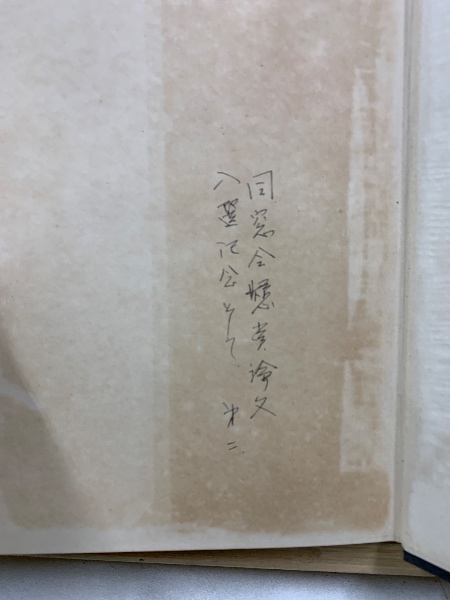 同窓会懸賞論文
入選記念として 第二